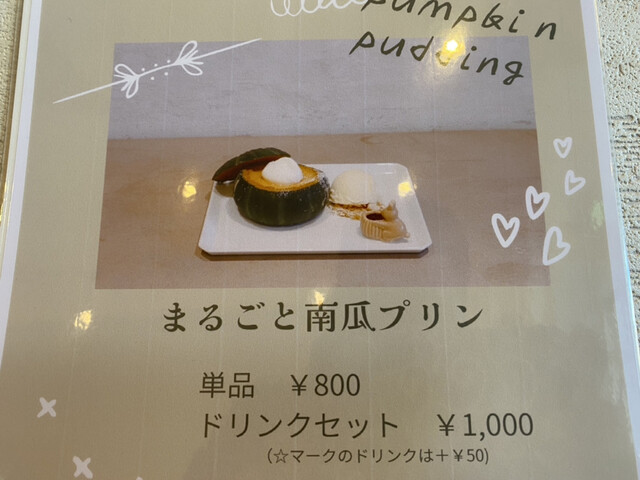 pumpkin
pudding
まるごと南瓜プリン
単品　￥800
ドリンクセット　￥1,000
（☆マークのドリンクは＋￥50）